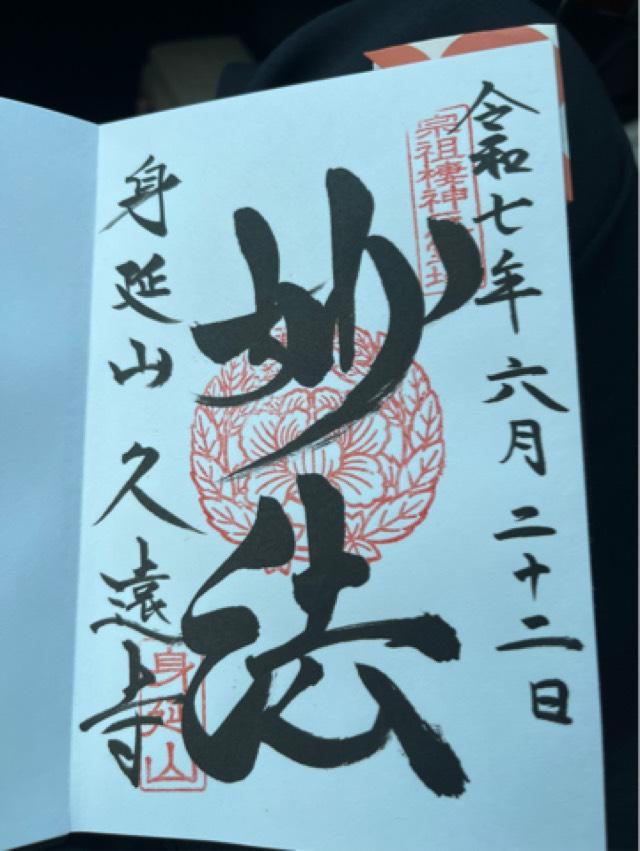 令和七年六月二十二日
宗祖棲神
妙法
身延山久遠寺
身延山